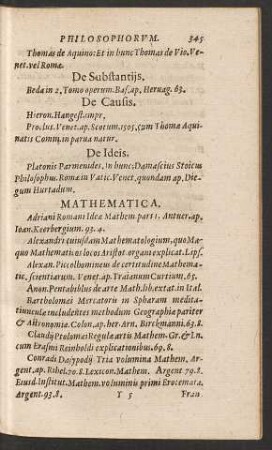 PHILOSOPHORVM. 345
Thomas de Aquino: Et in hunc Thomas de Vio. Ve-
net. vel Romæ.
De Substantijs.
Beda in 2. Tomo operum. Bas. ap. Hervag. 63.
De Causis.
Hieron. Hangest. impr.
Proclus. Venet. ap. Scotum. 1505. cum Thomæ Aqui-
natis Comm. in parva natur.
De Ideis.
Platonis Parmenides. In hunc: Damascius Stoicus
Philosophus. Romæ in Vatic. Venet. quondam ap. Die-
gum Hurtadum.
MATHEMATICA.
Adriani Romani Idea Mathem. part 1. Antuer. ap.
Ioan. Keerbergium. 93. 4.
Alexandri cuiusdam Mathematologium, quo Ma-
quo Mathematicos locos Aristot. organi explicat. Lips.
Alexan. Piccolhomineus de certitudine Mathema-
tic. scientiarum. Venet. ap. Traianum Curtium, 65.
Anon. Pentabiblus de arte Math. lib. extat in Ital.
Bartholomæi Mercatoris in Sphæram medita-
tiunculæ includentes methodum Geographiæ pariter
& Astronomiæ. Colon. ap. hær. Arn. Birckmanni. 63. 8.
Claudij Ptolomæi Regulæ artis Mathem. Gr. & Ln.
cum Erasmi Reinholdi explicationibus. 69. 8.
Conradi Dasypodij Tria volumina Mathem. Ar-
gent. ap. Rihel. 70. 8. Lexicon. Mathem. Argent 79. 8.
Eiusd. Institut. Mathem. voluminis primi Erotemata.
Argent. 93. 8. Y 5 Fran